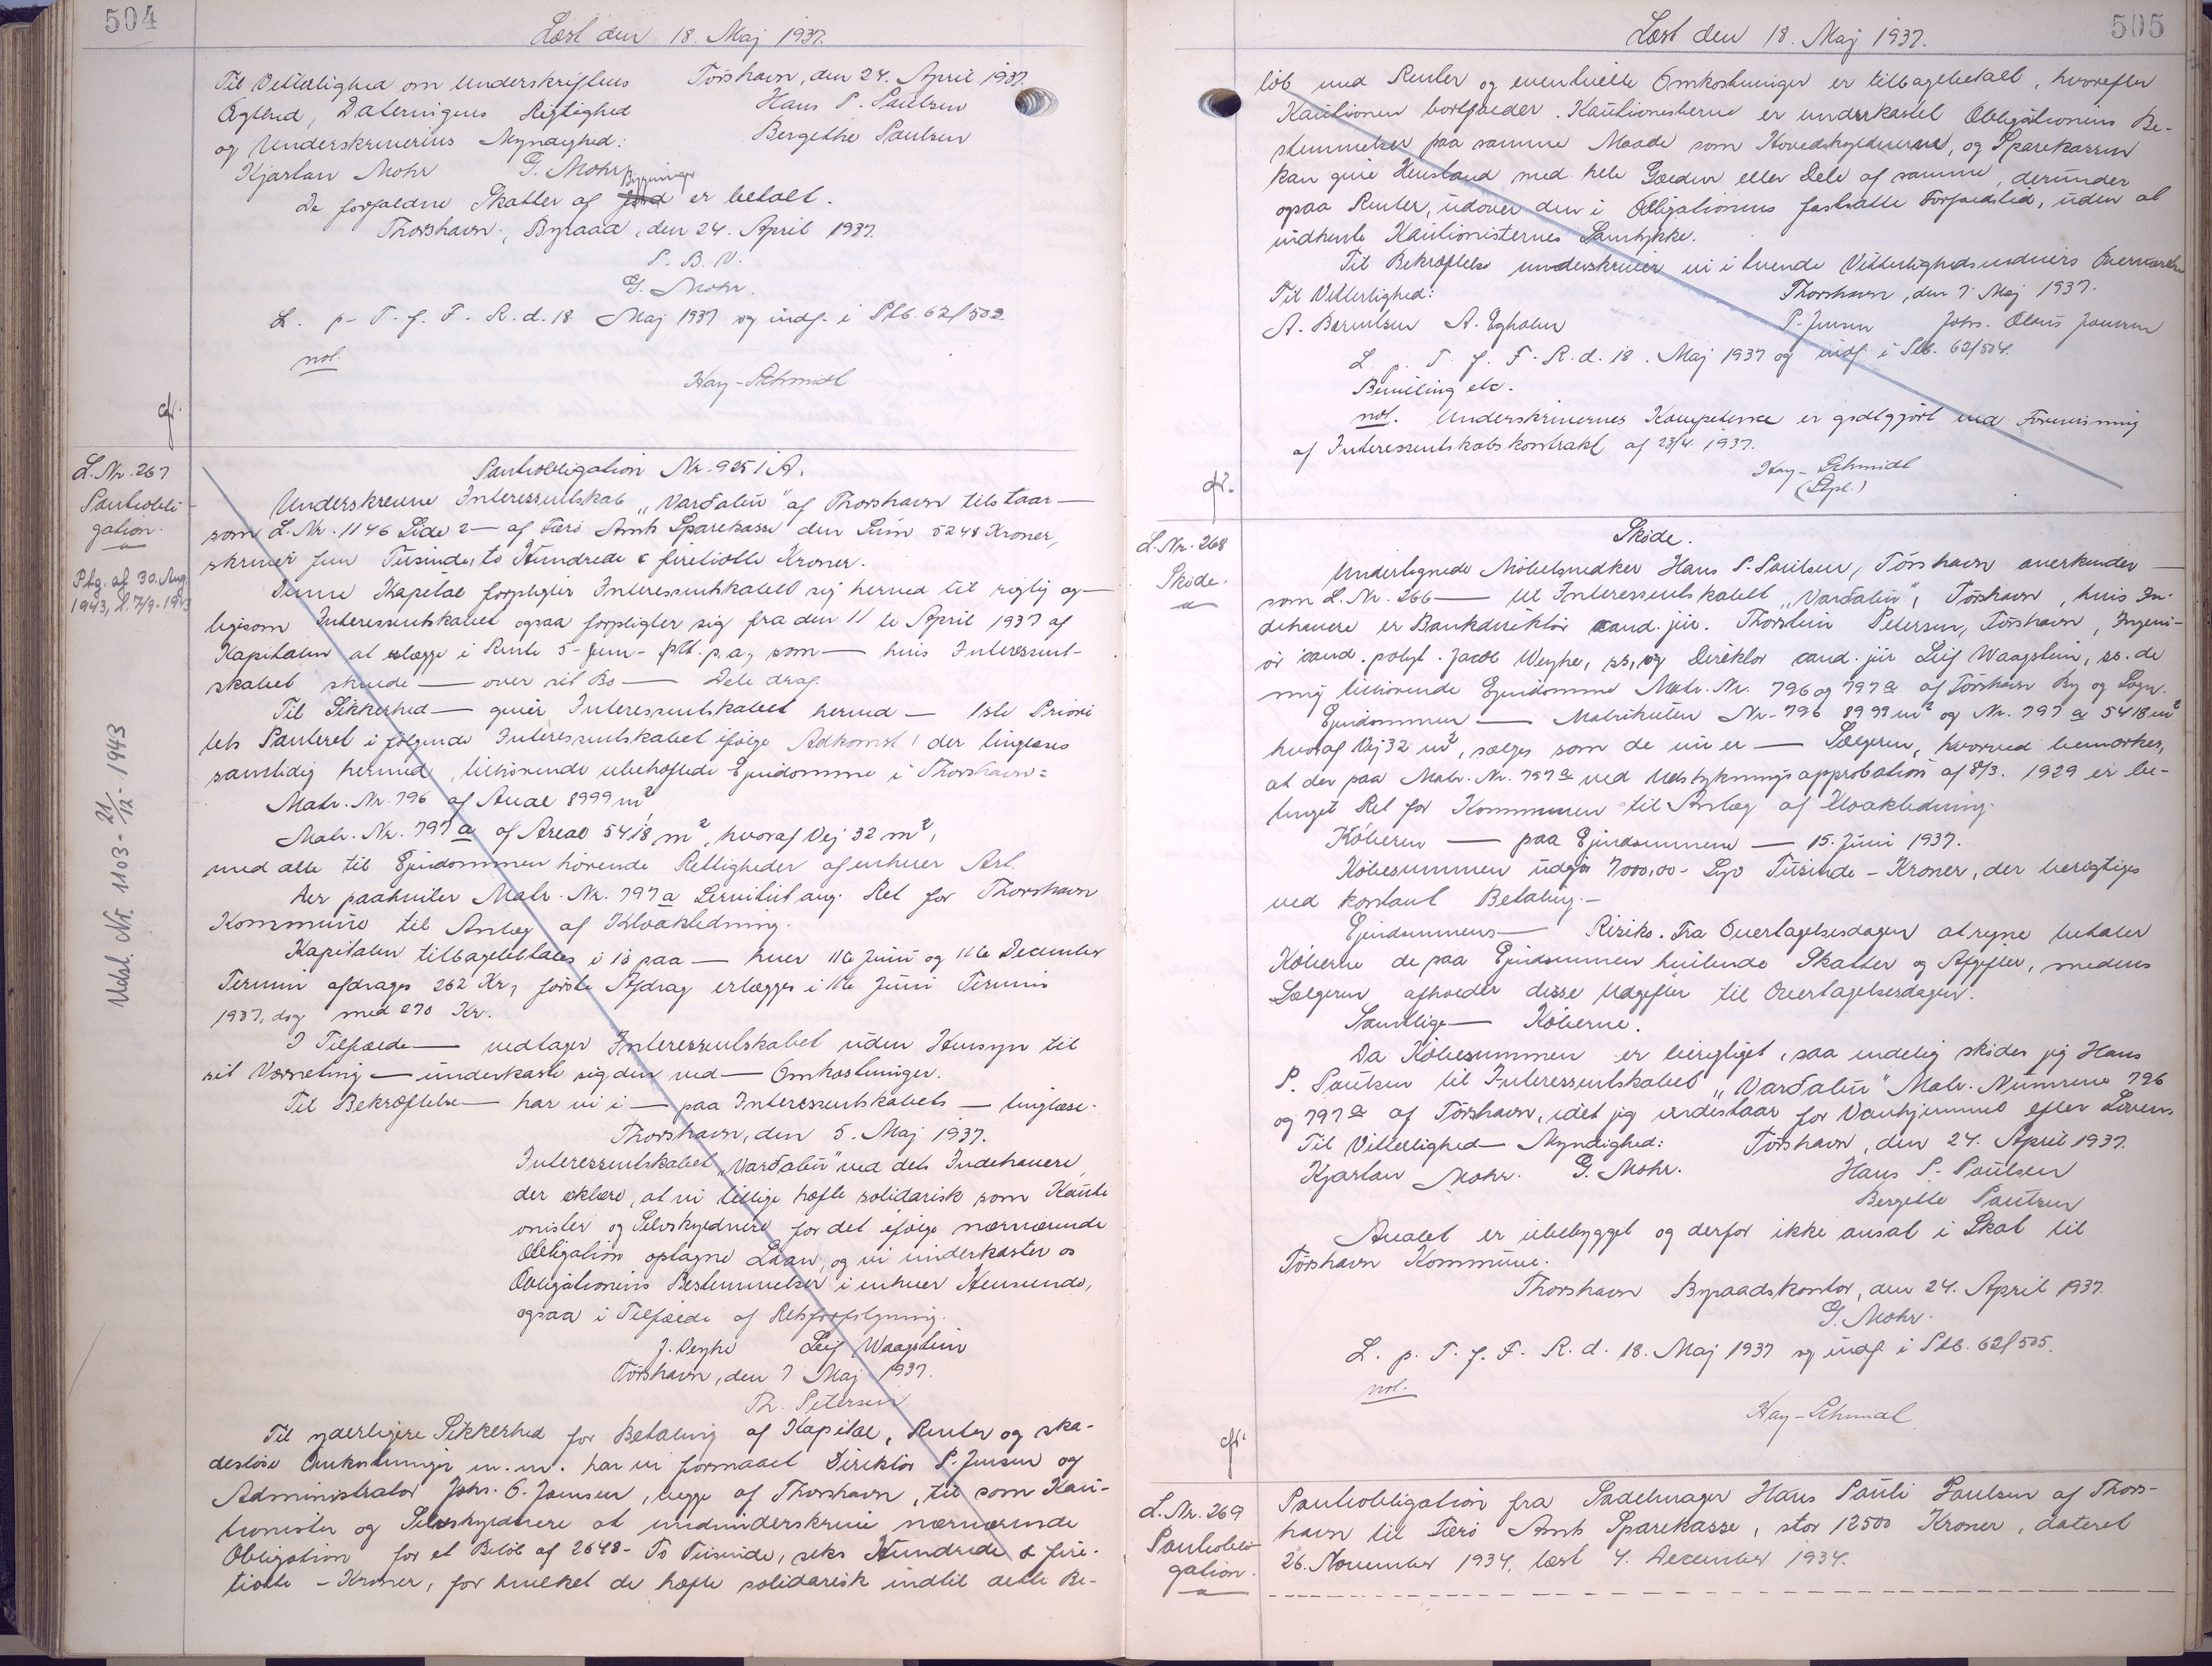 504
Læst den 18. Maj 1937.
Til Vitterlighed om Underskriftens
Ægthed, Dateringens Rigtighed
og Underskrivernes Myndighed:
Kjartan Mohr G. Mohr
Tórshavn, den 24. April 1937
Hans P. Paulsen
Bergithe Paulsen
De forfaldne Skatter af Bygninger er betalt.
Thorshavn, Byraad, den 24. April 1937.
P. B. V.
G. Mohr.
L. p. T. f. F. R. d. 18. Maj 1937 og indf. i Ptb. 62/502.
not.
Hay-Schmidt
cfr.
L. Nr. 267
Pantobli-
gation.
Ptg. af 30. Aug.
1943, l. 7/9-1943
Udsl. Nr. 1103 - 21/12 - 1943
Pantobligation Nr. 9251 A.
Underskrevne Interessentskab "Varðalin" af Thorshavn tilstaar —
som L. Nr. 1146 Side 2 — af Færø Amts Sparekasse den Sum 5248 Kroner,
skriver fem Tusinde, to Hundrede & firetiotte Kroner.
Denne Kapital forpligter Interessentskabet sig herved til rigtig og —
ligesom Interessentskabet ogsaa forpligter sig fra den 11te April 1937 af
Kapitalen at erlægge i Rente 5 - fem - pCt. p.a., som — hvis Interessent-
skabet skulde — over sit Bo — Dele deraf.
Til Sikkerhed — giver Interessentskabet herved — 1ste Priori
tets Panteret i følgende Interessentskabet ifølge Adkomst, der tinglæses
samtidig hermed, tilhørende ubehæftede Ejendomme i Thorshavn:
Matr. Nr. 796 af Areal 8999 m²
Matr. Nr. 797 a af Areal 5418 m², hvoraf Vej 32 m²,
med alle til Ejendommen hørende Rettigheder af enhver Art.
Der paahviler Matr. Nr. 797 a Servitut ang. Ret for Thorshavn
Kommune til Anlæg af Kloakledning.
Kapitalen tilbagebetales i 10 paa — hver 11te Juni og 11te December
Termin afdrages 262 Kr., første Afdrag erlægges i 11te Juni Termin
1937, dog med 270 Kr.
I Tilfælde — vedtager Interessentskabet uden Hensyn til
sit Værneting — underkaste sig den ved — Omkostninger.
Til Bekræftelse — har vi i — paa Interessentskabets — tinglæse.
Thorshavn, den 5. Maj 1937.
Interessentskabet "Varðalin" ved dets Indehavere,
der erklære, at vi tillige hæfte solidarisk som Kauti
onister og Selvskyldnere for det ifølge nærværende
Obligation optagne Laan, og vi underkaster os
Obligationens Bestemmelser i enhver Henseende,
ogsaa i Tilfælde af Retsforfølgning.
J. Weyhe Leif Waagstein
Tórshavn, den 7 Maj 1937.
Th. Petersen
Til yderligere Sikkerhed for Betaling af Kapital, Renter og ska-
desløse Omkostninger m.m. har vi formaaet Direktør P. Jensen og
Administrator Johs. O. Joensen, begge af Thorshavn, til som Kau-
tionister og Selvskyldnere at medunderskrive nærværende
Obligation for et Beløb af 2648 - To Tusinde, seks Hundrede & fire-
tiotte - Kroner, for hvilket de hæfte solidarisk indtil dette Be-
505
Læst den 18. Maj 1937.
løb med Renter og eventuelle Omkostninger er tilbagebetalt, hvorefter
Kautionen bortfalder. Kautionisterne er underkastet Obligationens Be-
stemmelser paa samme Maade som Hovedskyldnerne, og Sparekassen
kan give Henstand med hele Gælden eller Dele af samme, derunder
ogsaa Renter, udover den i Obligationens fastsatte Forfaldstid, uden at
indhente Kautionisternes Samtykke.
Til Bekræftelse underskriver vi i tvende Vitterlighedsvidners Overværelse
Til Vitterlighed: Thorshavn, den 7 Maj 1937.
A. Berentsen A. Egholm P. Jensen Johs. Olaus Joensen
L. p. T. f. F. R. d. 18. Maj 1937 og indf. i Ptb. 62/504.
Bevilling etc.
not. Underskrivernes Kompetence er godtgjort ved Forevisning
af Interessentskabskontrakt af 23/4. 1937.
Hay-Schmidt
cfr.
L. Nr. 268
Skøde.
Skøde.
Undertegnede Møbelsnedker Hans P. Paulsen, Tórshavn anerkender —
som L. Nr. 266 — til Interessentskabet "Varðalin", Tórshavn, hvis In-
dehavere er Bankdirektør cand. jur. Thorstein Petersen, Tórshavn, Ingeni-
ør cand. polyt. Jacob Weyhe, ss, og Direktør cand. jur Leif Waagstein, ss. de
mig tilhørende Ejendomme Matr. Nr. 796 og 797 a af Tórshavn By og Sogn.
Ejendommen — Matrikulen Nr. 796 8999 m² og Nr. 797 a 5418 m²
hvoraf Vej 32 m², sælges som de nu er — Sælgeren, hvorved bemærkes,
at der paa Matr. Nr. 797 a ved Udstykningsapprobation af 8/3. 1929 er be-
tinget Ret for Kommunen til Anlæg af Kloakledning.
Køberen — paa Ejendommene — 15. Juni 1937.
Købesummen udgør 7000,00 - Syv Tusinde - Kroner, der berigtiges
ved kontant Betaling. —
Ejendommens — Risiko. Fra Overtagelsesdagen at regne betaler
Køberne de paa Ejendommen hvilende Skatter og Afgifter, medens
Sælgeren afholder disse Udgifter til Overtagelsesdagen.
Samtlige — Køberne.
Da Købesummen er berigtiget, saa endelig skøder jeg Hans
P. Paulsen til Interessentskabet "Varðalin" Matr. Numrene 796
og 797 a af Tórshavn, idet jeg indestaar for Vanhjemmel efter Loven.
Til Vitterlighed — Myndighed: Tórshavn, den 24. April 1937.
Kjartan Mohr. G. Mohr. Hans P. Paulsen
Bergithe Paulsen
Arealet er ubebygget og derfor ikke ansat i Skat til
Tórshavn Kommune.
Thorshavn Byraadskontor, den 24. April 1937.
G. Mohr.
L. p. T. f. F. R. d. 18. Maj 1937 og indf. i Ptb. 62/505.
not.
Hay-Schmidt
cfr.
L. Nr. 269
Pantobli-
gation.
Pantobligation fra Sadelmager Hans Pauli Poulsen af Thors-
havn til Færø Amts Sparekasse, stor 12500 Kroner, dateret
26. November 1934, læst 4. December 1934.